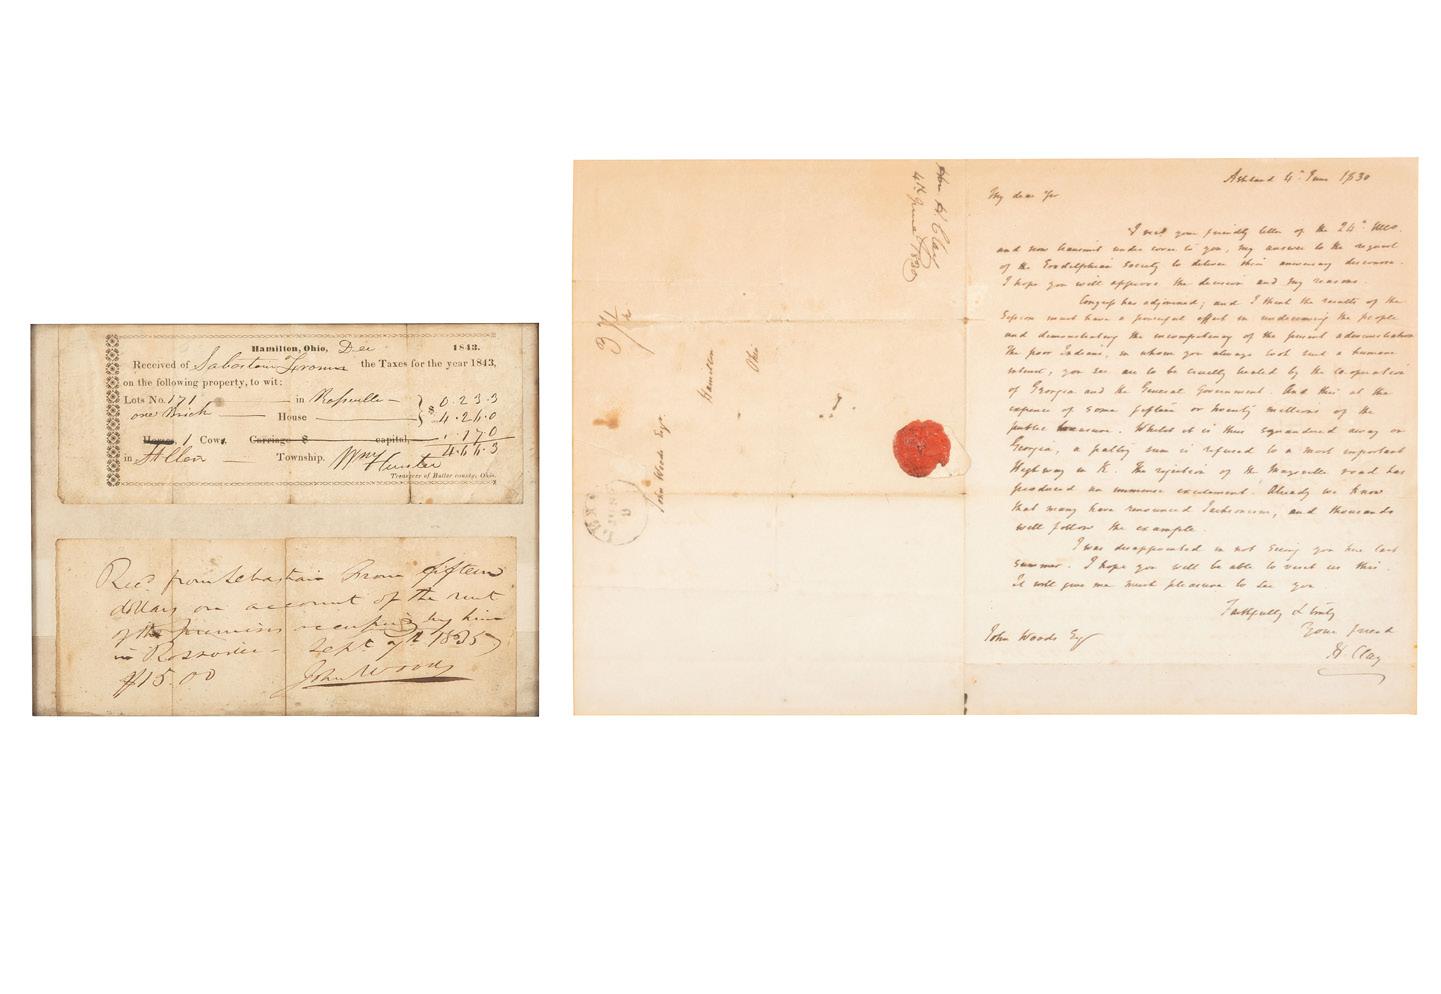 Hamilton, Ohio, Dec 1843.
Received of the Taxes for the year 1843,
on the following property, to wit:
Lots No. 171 in Rossville
one Brick House $ 0.23.3
4.24.0
Horses, 1 Cows, Carriage $ capital, .17.0
4.64.3
in St Clair Township. Wm Hunter
Treasurer of Butler county, Ohio.
Recd from Sebastian fifteen
dollars on account of the rent
of the premises occupied by him
in Rossville Sept 7th 1835
$15.00 John Woods
Hon H. Clay
4th June 1830
John Woods Esqr.
Hamilton
Ohio
Ashland 4th June 1830
My dear Sir
I recd your friendly letter of the 24th Ulto.
and now transmit under cover to you, my answer to the request
of the Erodelphian Society to deliver their anniversary discourse.
I hope you will approve the decision and my reasons.
Congress has adjourned; and I think the results of the
Session must have a powerful effect in undeceiving the people
and demonstrating the incompetency of the present administration
The poor Indians, in whom you always took such a humane
interest, you see are to be cruelly treated by the co-operation
of Georgia and the General Government. And this at the
expence of some fifteen or twenty millions of the
public treasure. Whilst it is thus squandered away on
Georgia, a paltry sum is refused to a most important
Highway in K. The rejection of the Maysville road has
produced an immense excitement. Already we know
that many have renounced Jacksonism, and thousands
will follow the example.
I was disappointed in not seeing you here last
summer. I hope you will be able to visit us this.
It will give me much pleasure to see you
Faithfully & truly
Your friend
H. Clay
John Woods Esqr